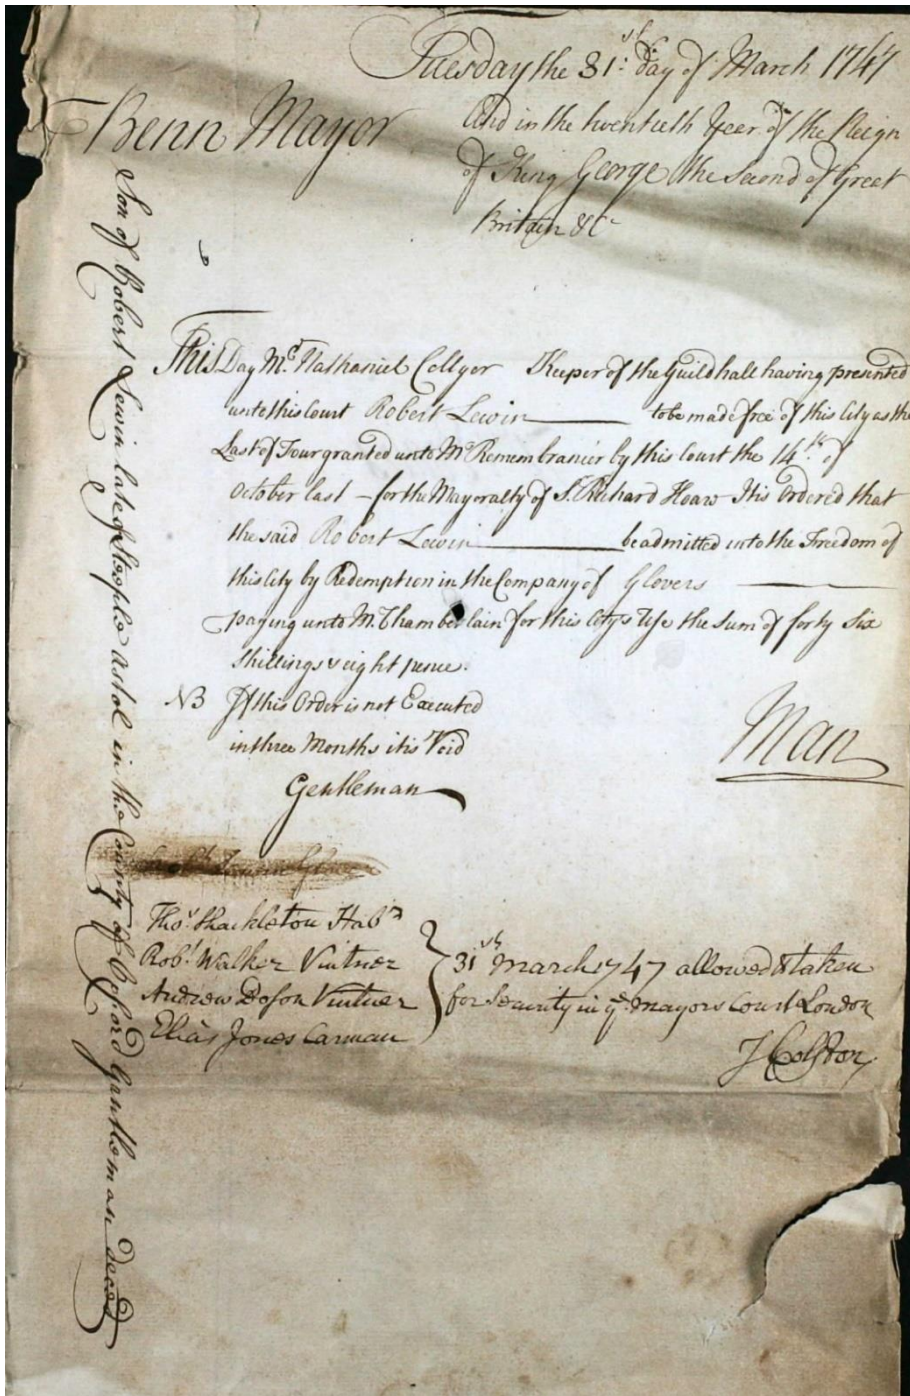 Benn Mayor
Tuesday the 31st: day of March 1747
And in the twentieth Year of the Reign
of King George the Second of Great
Britain &c
This Day Mr. Nathaniel Collyer Keeper of the Guildhall having presented
unto this Court Robert Lewin to be made free of this City as the
Last of Four granted unto Mr Remembrancer by this Court the 14th. of
October last - for the Mayoralty of Sr. Richard Hoare It is Ordered that
the said Robert Lewin be admitted into the Freedom of
this City by Redemption in the Company of Glovers
paying unto Mr. Chamberlain for this Citys Use the Sum of forty Six
Shillings & eight pence.
NB If this Order is not Executed
in three Months it is Void
Gentleman
Man
Thos Shackleton
Robt Walker Vintner
Andrew Doson Vintner
Elias Jones Carman
31st March 1747 allowed & taken
for Security in ye Mayors Court London
J Colston
Son of Robert Lewin late of Steeple astol in the County of Gentleman decd